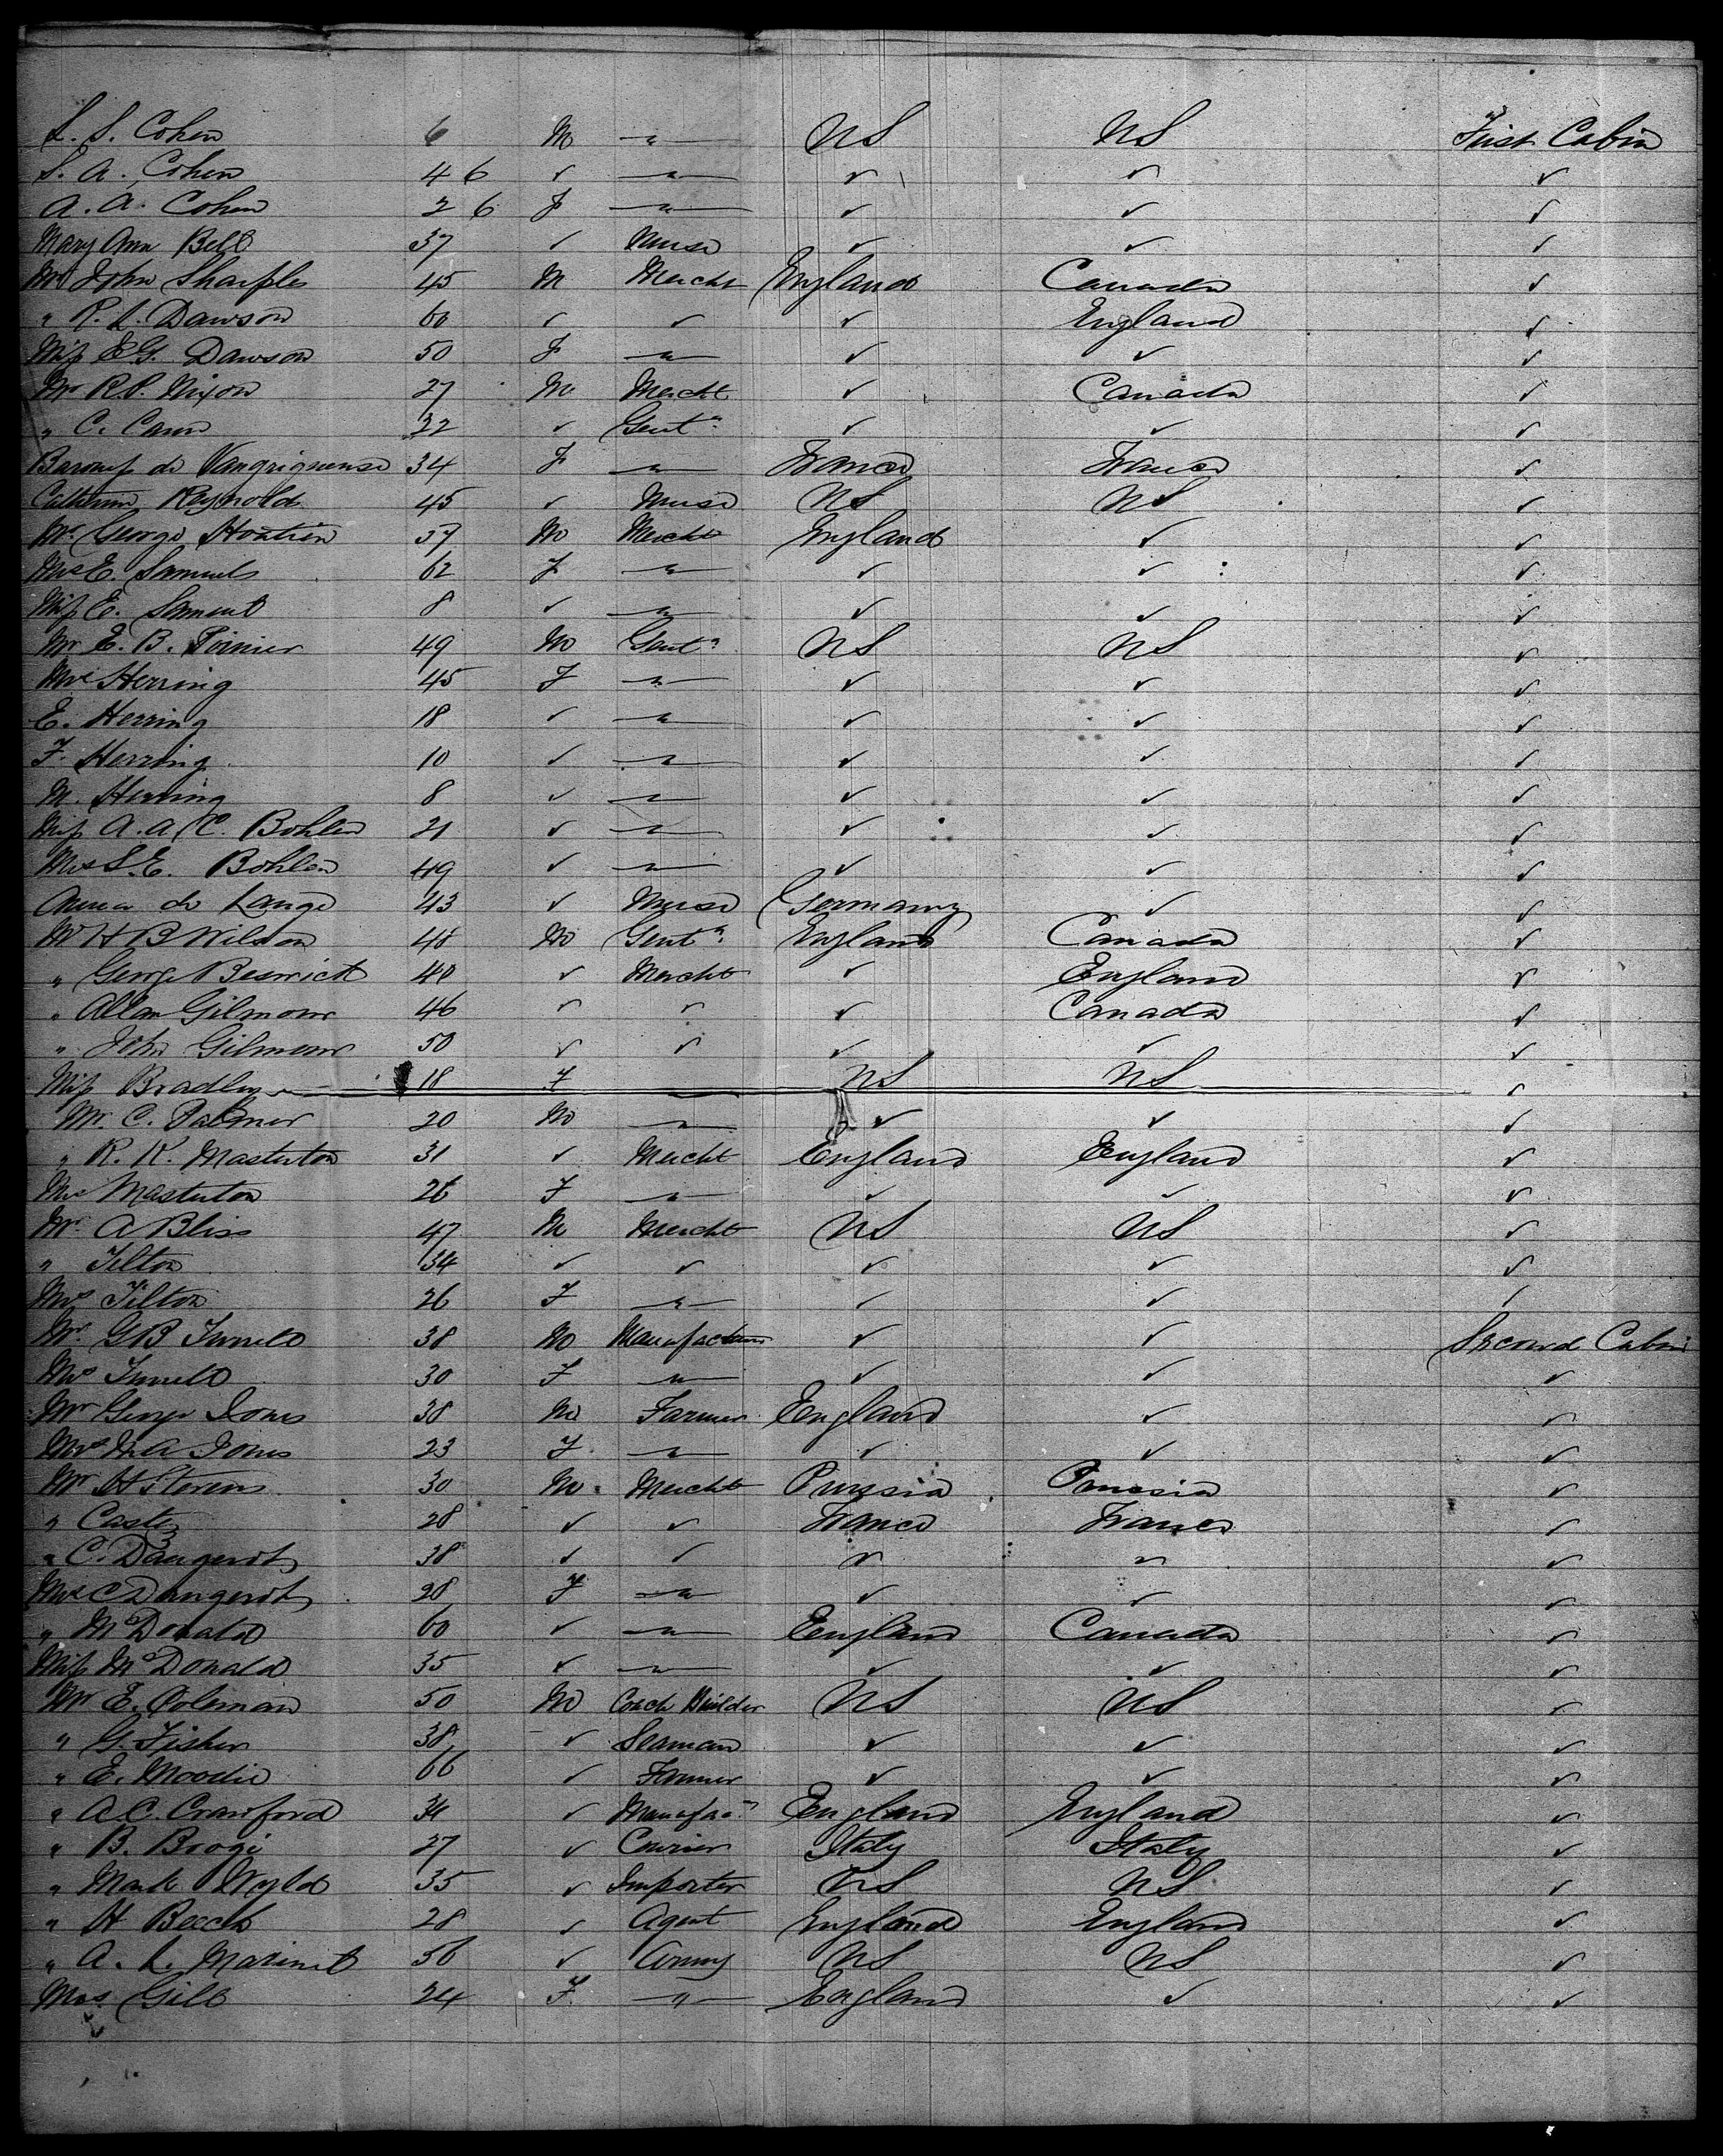 L. S. Cohen 6 M —"— US US First Cabin
S. A. Cohen 46 ✓ —"— ✓ ✓ ✓
A. A. Cohen 26 F —"— ✓ ✓ ✓
Mary Ann Bell 37 ✓ Nurse ✓ ✓ ✓
Mr John Sharples 45 M Mercht England Canada ✓
" R. L. Dawson 60 ✓ ✓ ✓ England ✓
Miss E G. Dawson 50 F —"— ✓ ✓ ✓
Mr R P. Nixon 27 M Mercht ✓ Canada ✓
" C. Cann 32 ✓ Gentn ✓ ✓ ✓
Baroness de 34 F —"— France France ✓
Catherine Raynolds 45 ✓ Nurse US US ✓
Mr George 37 M Mercht England ✓ ✓
Mrs E. Samuels 62 F —"— ✓ ✓ ✓
Miss E. Samuel 8 ✓ —"— ✓ ✓ ✓
Mr E. B. 49 M Gentn US US ✓
Mrs Herring 45 F —"— ✓ ✓ ✓
E. Herring 18 ✓ —"— ✓ ✓ ✓
F. Herring 10 ✓ —"— ✓ ✓ ✓
M. Herring 8 ✓ —"— ✓ ✓ ✓
Miss A. A. C. Bohlen 21 ✓ —"— ✓ ✓ ✓
Mrs S. E. Bohlen 49 ✓ —"— ✓ ✓ ✓
Anna de Lange 43 ✓ Nurse Germany ✓ ✓
Mr H B Wilson 48 M Gentn England Canada ✓
" George Beswick 40 ✓ Mercht ✓ England ✓
" Allan Gilmour 46 ✓ " ✓ Canada ✓
" John Gilmour 50 ✓ ✓ ✓ ✓ ✓
Miss Bradley 18 F — US US ✓
Mr. C. Palmer 20 M —"— ✓ ✓ ✓
" R. K. Masterton 31 ✓ Mercht England England ✓
Mrs Masterton 26 F —"— ✓ ✓ ✓
Mr. A Bliss 47 M Mercht US US ✓
" Tilton 34 ✓ ✓ ✓ ✓ ✓
Mrs Tilton 26 F —"— ✓ ✓ ✓
Mr. G B 38 M Manufacturer ✓ ✓ Second Cabin
Mrs 30 F —"— ✓ ✓ ✓
Mr George Jones 38 M Farmer England ✓ ✓
Mrs M A Jones 23 F —"— ✓ ✓ ✓
Mr H Stevens 30 M Mercht Prussia Prussia ✓
" 28 ✓ ✓ France France ✓
" C. 38 ✓ ✓ ✓ " ✓
Mrs C 28 F —"— ✓ ✓ ✓
" McDonald 60 ✓ —"— England Canada ✓
Miss McDonald 35 ✓ —"— ✓ ✓ ✓
Mr E. Coleman 50 M Coach Builder US US ✓
" G. Fisher 38 ✓ Seaman ✓ ✓ ✓
" E. Moodie 66 ✓ Farmer ✓ ✓ ✓
" A C. Crawford 34 ✓ Manufacr England England ✓
" B. Boogi 27 ✓ Courier Italy Italy ✓
" Mark Wyld 35 ✓ Importer US US ✓
" H Beech 28 ✓ Agent England England ✓
" A. L. 36 ✓ Army US US ✓
Mrs Gill 24 F —"— England ✓ ✓